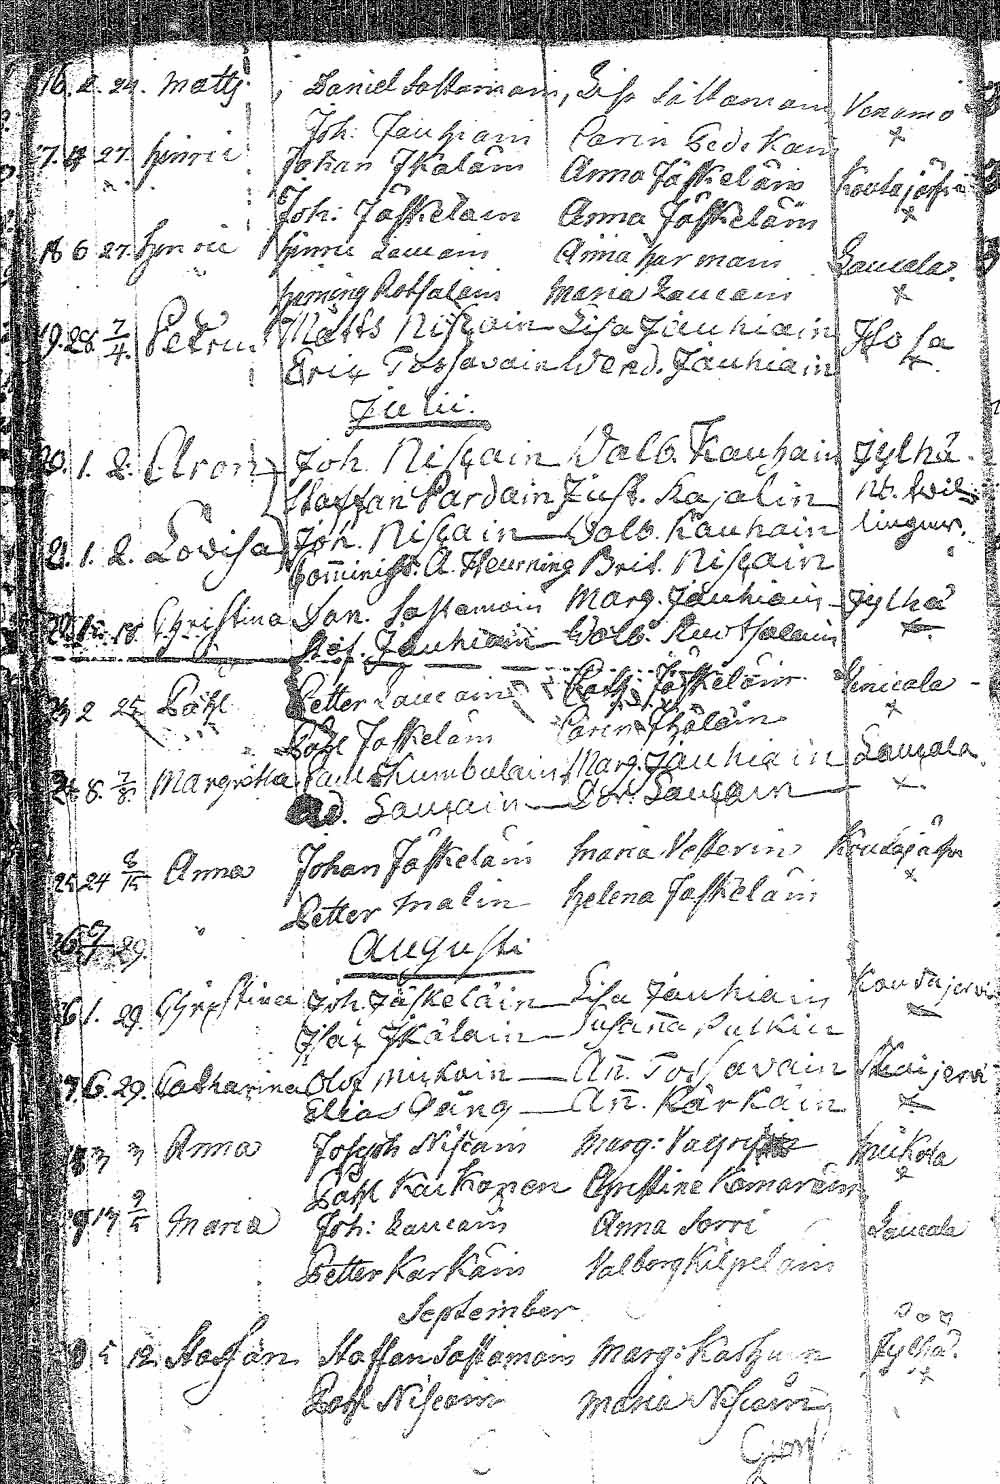 16. 2. 24. Matts, Daniel Sastamoin, Lisa Sastamoin Venamo
Joh: Jauhiain Carin
17. 27. Hinric Johan Ikäläin Anna Jäskeläin Koutajärfvi
Joh: Jäskeläin Anna Jäskeläin
18 6 27. Hinric Hinric Laucain Anna Harmain Laucala.
Henning Rotsalain Maria Laucain
19. 28. 7/4. Petrus Matts Niscain Lisa Jauhiain Hosa
Eric Tossavain Jauhiain
Julii.
20. 1. 2. Aron Joh. Niscain Walb. Kauhain Jylhä.
Staffan Pardain Just. Kajalin Nb. twil-
21. 1. 2. Lovisa Joh. Niscain Walb. Kauhain lingar.
Comminist. A. Heurning Brit. Niscain
22. 18. Christina Dan. Sastamoin Marg. Jauhiain Jylhä
Olof. Jauhiain Walb. Ruotsalain
23 2 25 Påhl Petter Laucain Jäskeläin Linicala
Påhl Jäskeläin Carin
24. 8. 7/8. Margretha Paul Kumbulain Marg. Jauhiain Laucala.
Ad. Laucain Dor. Laucain
25 24 8/15 Anna Johan Jäskeläin Maria Vesterin Koudajärfvi
Petter Malin Helena Jäskeläin
29.
Augusti
26 1. 29. Christina Joh. Jäskeläin Lisa Jauhiain Koudajervi
Isai Ikäläin Susanna Pulkin
27. 6. 29. Catharina Olof Mickoin An. Tossavain jervi
Elias Gång An. Kärkäin
28 3 3 Anna Joseph Niscain Marg: Mickola
Påhl Kaikonen Christine Komarain
29 13 9/5 Maria Joh: Laucain Anna Sorri Laucala
Petter Karkain Valborg Kilpeläin
September
30 5 12. Staffan Staffan Sastamoin Marg: Kaihuin Jylhä.
Påhl Niscain Maria Niscain